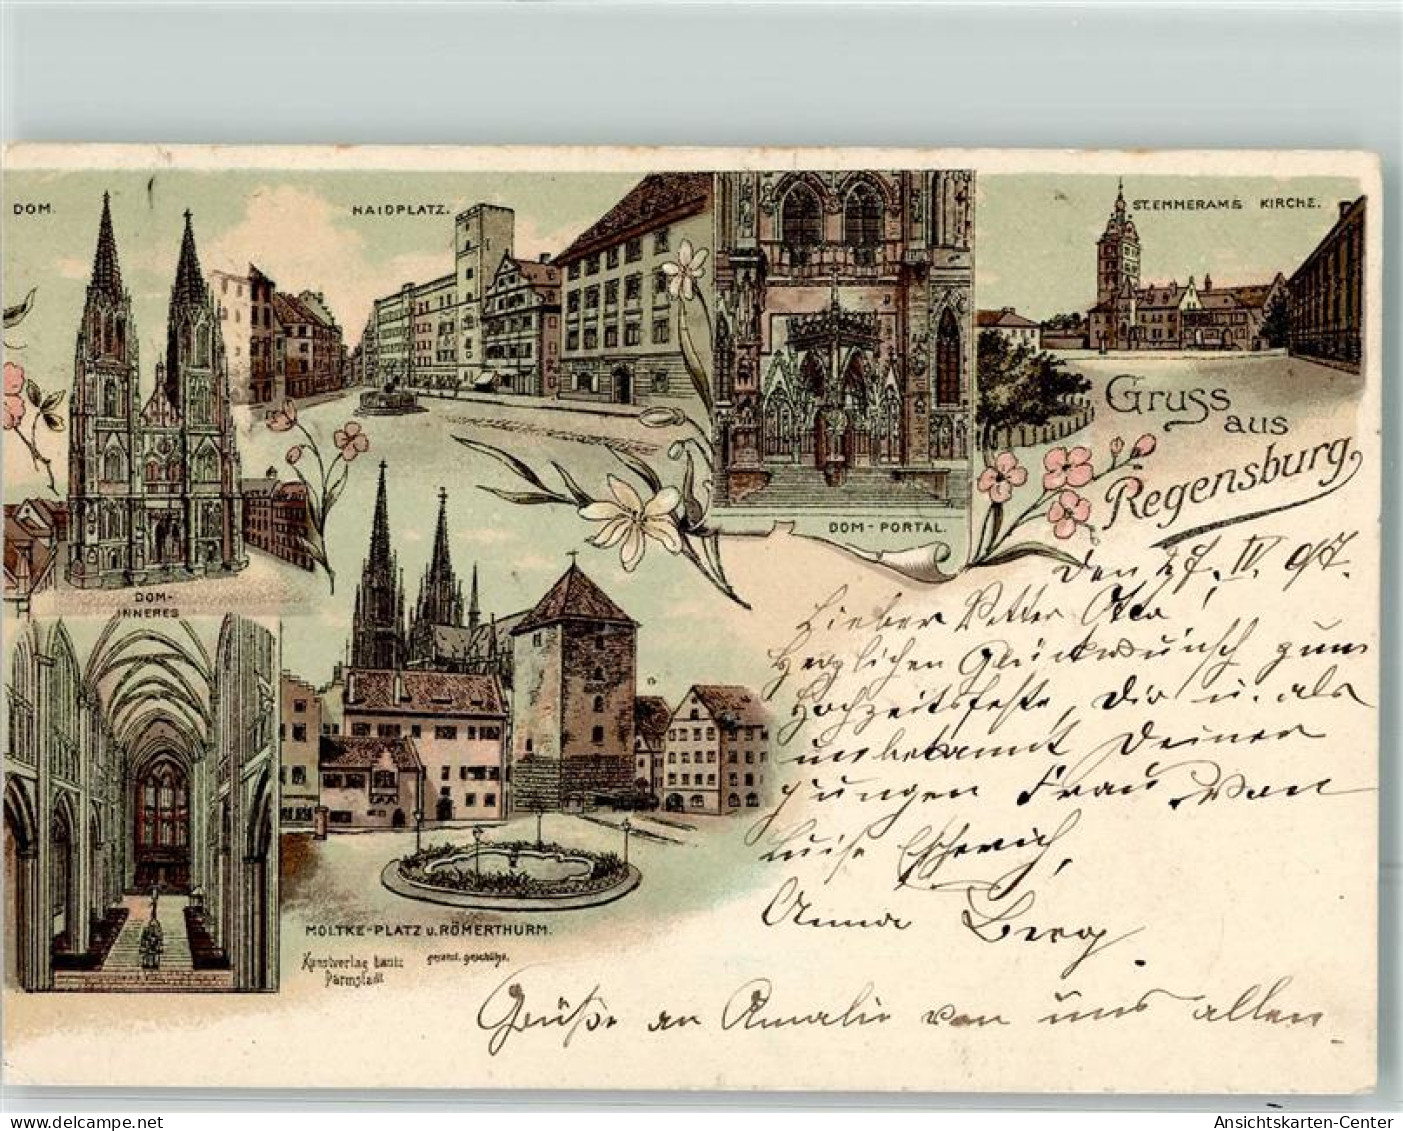 DOM.
HAIDPLATZ.
ST. EMMERAMS KIRCHE.
Gruss
aus
Regensburg.
DOM-PORTAL.
DOM-
INNERES
MOLTKE-PLATZ u. RÖMERTHURM.
Kunstverlag Lautz
Darmstadt
gesetzl. geschützt.
den 27. IV. 97.
Lieber Vetter Otto!
Herzlichen Glückwunsch zum
Hochzeitsfeste, Dir u. als
unbekannt Deiner
jungen Frau. Von
Luise Escherich,
Anna Berg.
Grüße an Amalie von uns allen.
Ansichtskarten-Center